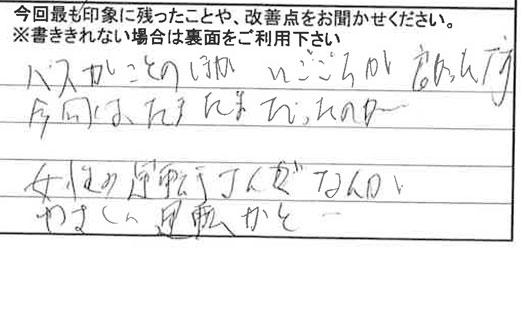 今回最も印象に残ったことや、改善点をお聞かせください。
※書ききれない場合は裏面をご利用下さい
バスがことのほか いごこちが 良かったです
今回は、たまたまだったのか
女性の運転手さんだ なんか
やさしい運転かと